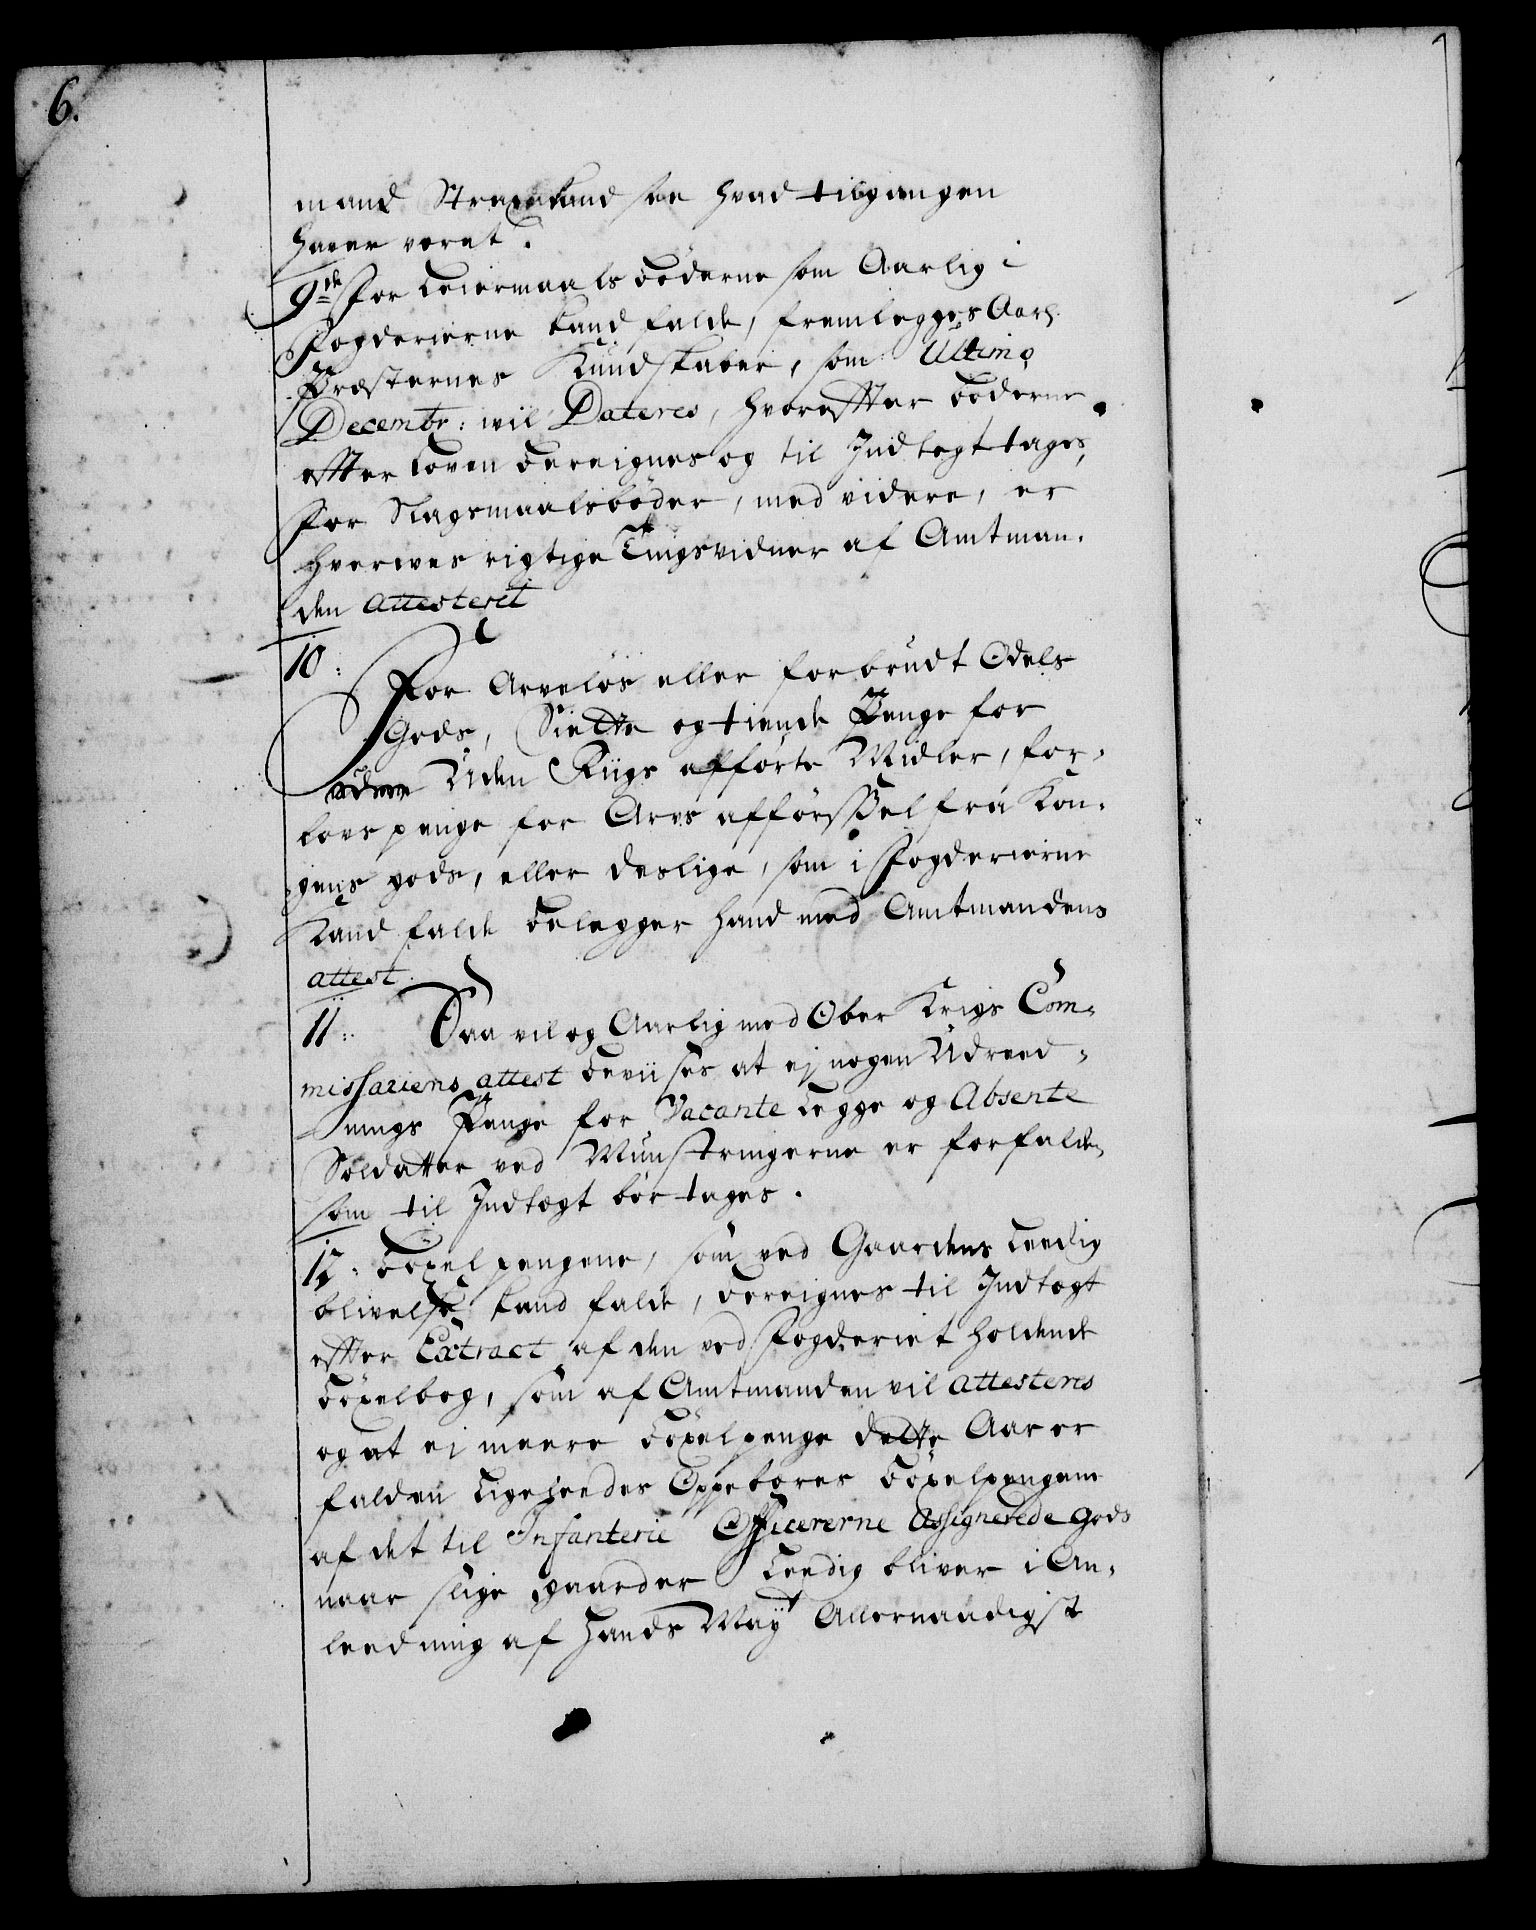 6.
mand Strax kand see hvad tilgangen
haver været.
9de For Leiermaals bøderne som Aarlig i
Fogderierne kand falde, fremlegges Aarl:
Præsternes Kundskaber, som Ultimo
Decembr: wil Dateres, hvorefter bøderne
efter Loven bereignes og til Indtegt tages,
for Slagsmaalsbøder, med videre, er
hverves rigtige Tingsvidner af Amtman-
den attesteret
10: For Arveløs eller forbrudt Odels
Gods, Siette og tiende Penge for
Uden Riigs afførte Midler, for-
lovs penge for Arvs afførssel fra Kon-
gens gods, eller deslige, som i Fogderierne
kand falde belegger hand med Amtmandens
attest.
11: Saa vil og Aarlig med Ober Krigs Com-
missariens attest beviises at ej nogen Udreed-
nings Penge for Vacante Legge og Absente
Soldatter ved Munstringerne er forfalden
som til Indtægt bør tages.
12: Bøxelpengene, som ved Gaardens Leedig
blivelse kand falde, bereignes til Indtegt
efter Extract af den ved Fogderiet holdende
Bøxelbog, som af Amtmanden vil attesteres
og at ej meere bøxelpenge dette Aar er
falden Ligeleedes Oppebæres bøxelpengene
af det til Infanterie Officererne Assignerede gods
naar slige gaarder Leedig bliver i An-
leedning af Hands Mayt Allernaadigst